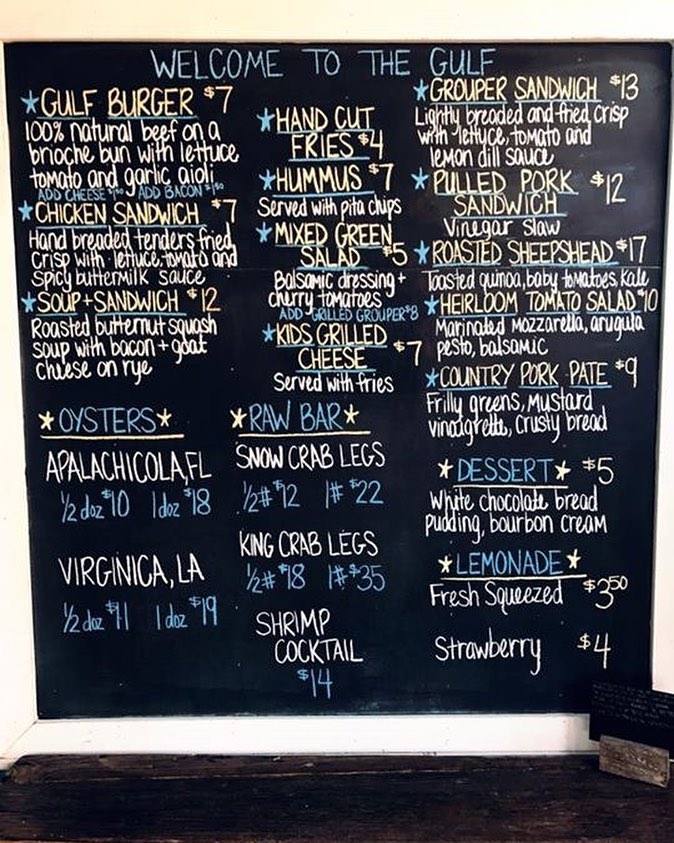 WELCOME TO THE GULF
★GULF BURGER $7
100% natural beef on a
brioche bun with lettuce
tomato and garlic aioli
ADD CHEESE ADD BACON
★CHICKEN SANDWICH $7
Hand breaded tenders fried
crisp with lettuce, tomato and
spicy buttermilk sauce
★SOUP+SANDWICH $12
Roasted butternut squash
soup with bacon+goat
cheese on rye
★OYSTERS★
APALACHICOLA, FL
1/2 doz $10 1 doz $18
VIRGINICA, LA
1/2 doz $11 1 doz $19
★HAND CUT
FRIES $4
★HUMMUS $7
Served with pita chips
★MIXED GREEN
SALAD $5
Balsamic dressing+
cherry tomatoes
ADD GRILLED GROUPER $8
★KIDS GRILLED
CHEESE $7
Served with fries
★RAW BAR★
SNOW CRAB LEGS
1/2# $12 1# $22
KING CRAB LEGS
1/2# $18 1# $35
SHRIMP
COCKTAIL
$14
★GROUPER SANDWICH $13
Lightly breaded and fried crisp
with lettuce, tomato and
lemon dill sauce
★PULLED PORK
SANDWICH $12
Vinegar slaw
★ROASTED SHEEPSHEAD $17
Toasted quinoa, baby tomatoes, Kale
★HEIRLOOM TOMATO SALAD $10
Marinated mozzarella, arugula
pesto, balsamic
★COUNTRY PORK PATE $9
Frilly greens, mustard
vinaigrette, crusty bread
★DESSERT★ $5
White chocolate bread
pudding, bourbon cream
★LEMONADE★
Fresh Squeezed $3.50
Strawberry $4